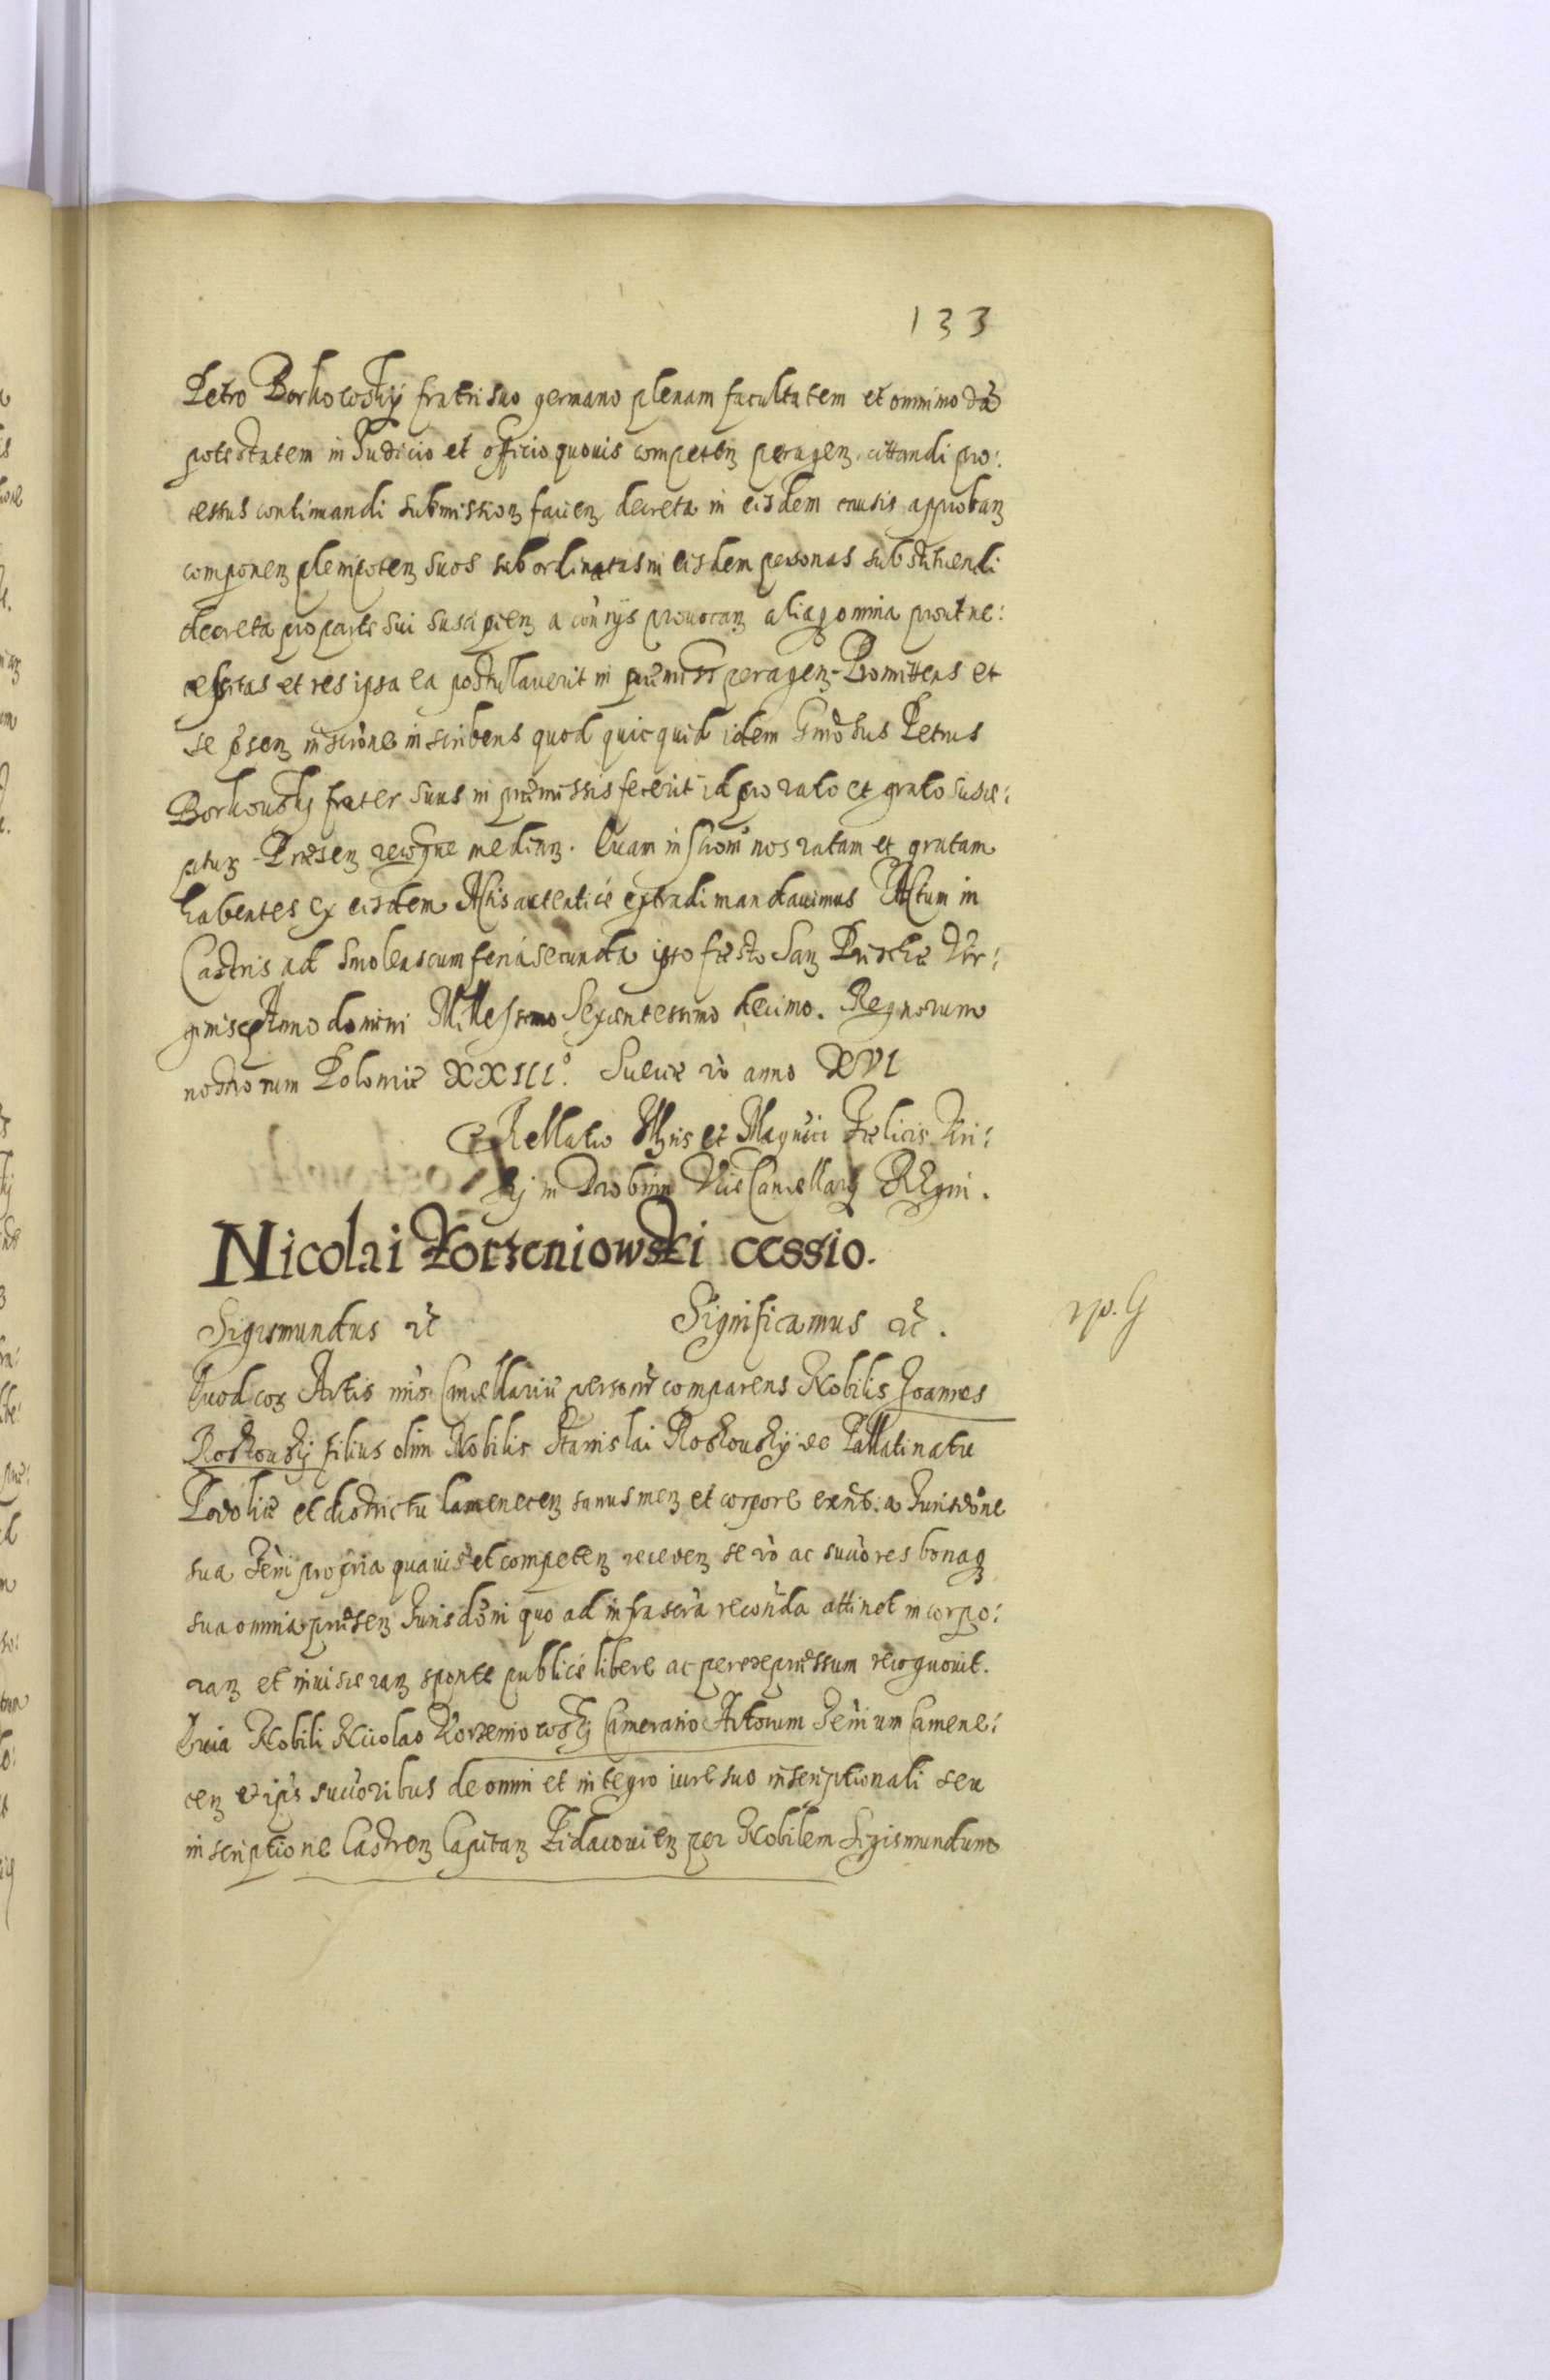 133
Petro Borkowskÿ fratri suo germano plenam facultatem et omnimodã
potestatem in Judicio et officio quouis competenʒ peragenʒ cittandi pro:
cessus continuandi submissionʒ facienʒ decreta in eisdem causis approbanʒ
componenʒ plenipotenʒ suos subordinatas in eisdem personas substituendi
decreta pro parte sui suscipienʒ a contrÿs prouocanʒ aliaqʒ omnia prout ne:
cessitas et res ipsa ea postulauerit in præmissis peragenʒ - Promittens et
se p̃senʒ inscr̃one inscribens quod quicquid idem Gñosus Petrus
Borkouskÿ frater suus in præmissis fecerit id pro rato et grato susce:
pturʒ - Præsenʒ recogne medianʒ. Quam inscr̃oni nos ratam et gratam
habentes ex eisdem Actis autenticè extradi mandauimus Actum in
Castris ad Smolenscum feria secunda ipso festo Sanʒ Priscæ Vir:
ginis Anno domini Millesimo Sexcentessimo decimo. Regnorum
nostrorum Poloniæ XXIII°. Sueciæ v̊o anno XVI
Rellatio Illr̃is et Magn̊ici Fœlicis Kri:
skÿ in Drobnin Vice Cancellarÿ Regni.
Nicolai Korzeniowski cessio.
Sigismundus &c̃ Significamus &c̃.
rp. G
Quod corʒ Actis nr̃is Cancellariæ personr̃ comparens Nobilis Joannes
Roskouskÿ filius olim Nobilis Stanislai Roskouskÿ de Pallatinatu
Podoliæ et districtu Camenecenʒ sanus menʒ et corpore exñs: a Jurisd̊one
sua Terr̃i propria quauis et competenʒ recedenʒ se v̊o ac succ̊ores bonaqʒ
sua omnia præsenʒ Jurisd̊oni quo ad infrascr̃a recoñda attinet incorpo:
ranʒ et inuisceranʒ sponte publicè libere ac per expressum recognouit.
Quia Nobili Nicolao Korzeniowskÿ Camerario Actorum Terr̃ium Camene:
cenʒ et ip̃is succ̊oribus de omni et integro iure suo inscriptionali seu
inscriptione Castrenʒ Capitanʒ Zidacouienʒ per Nobilem Sigismundum